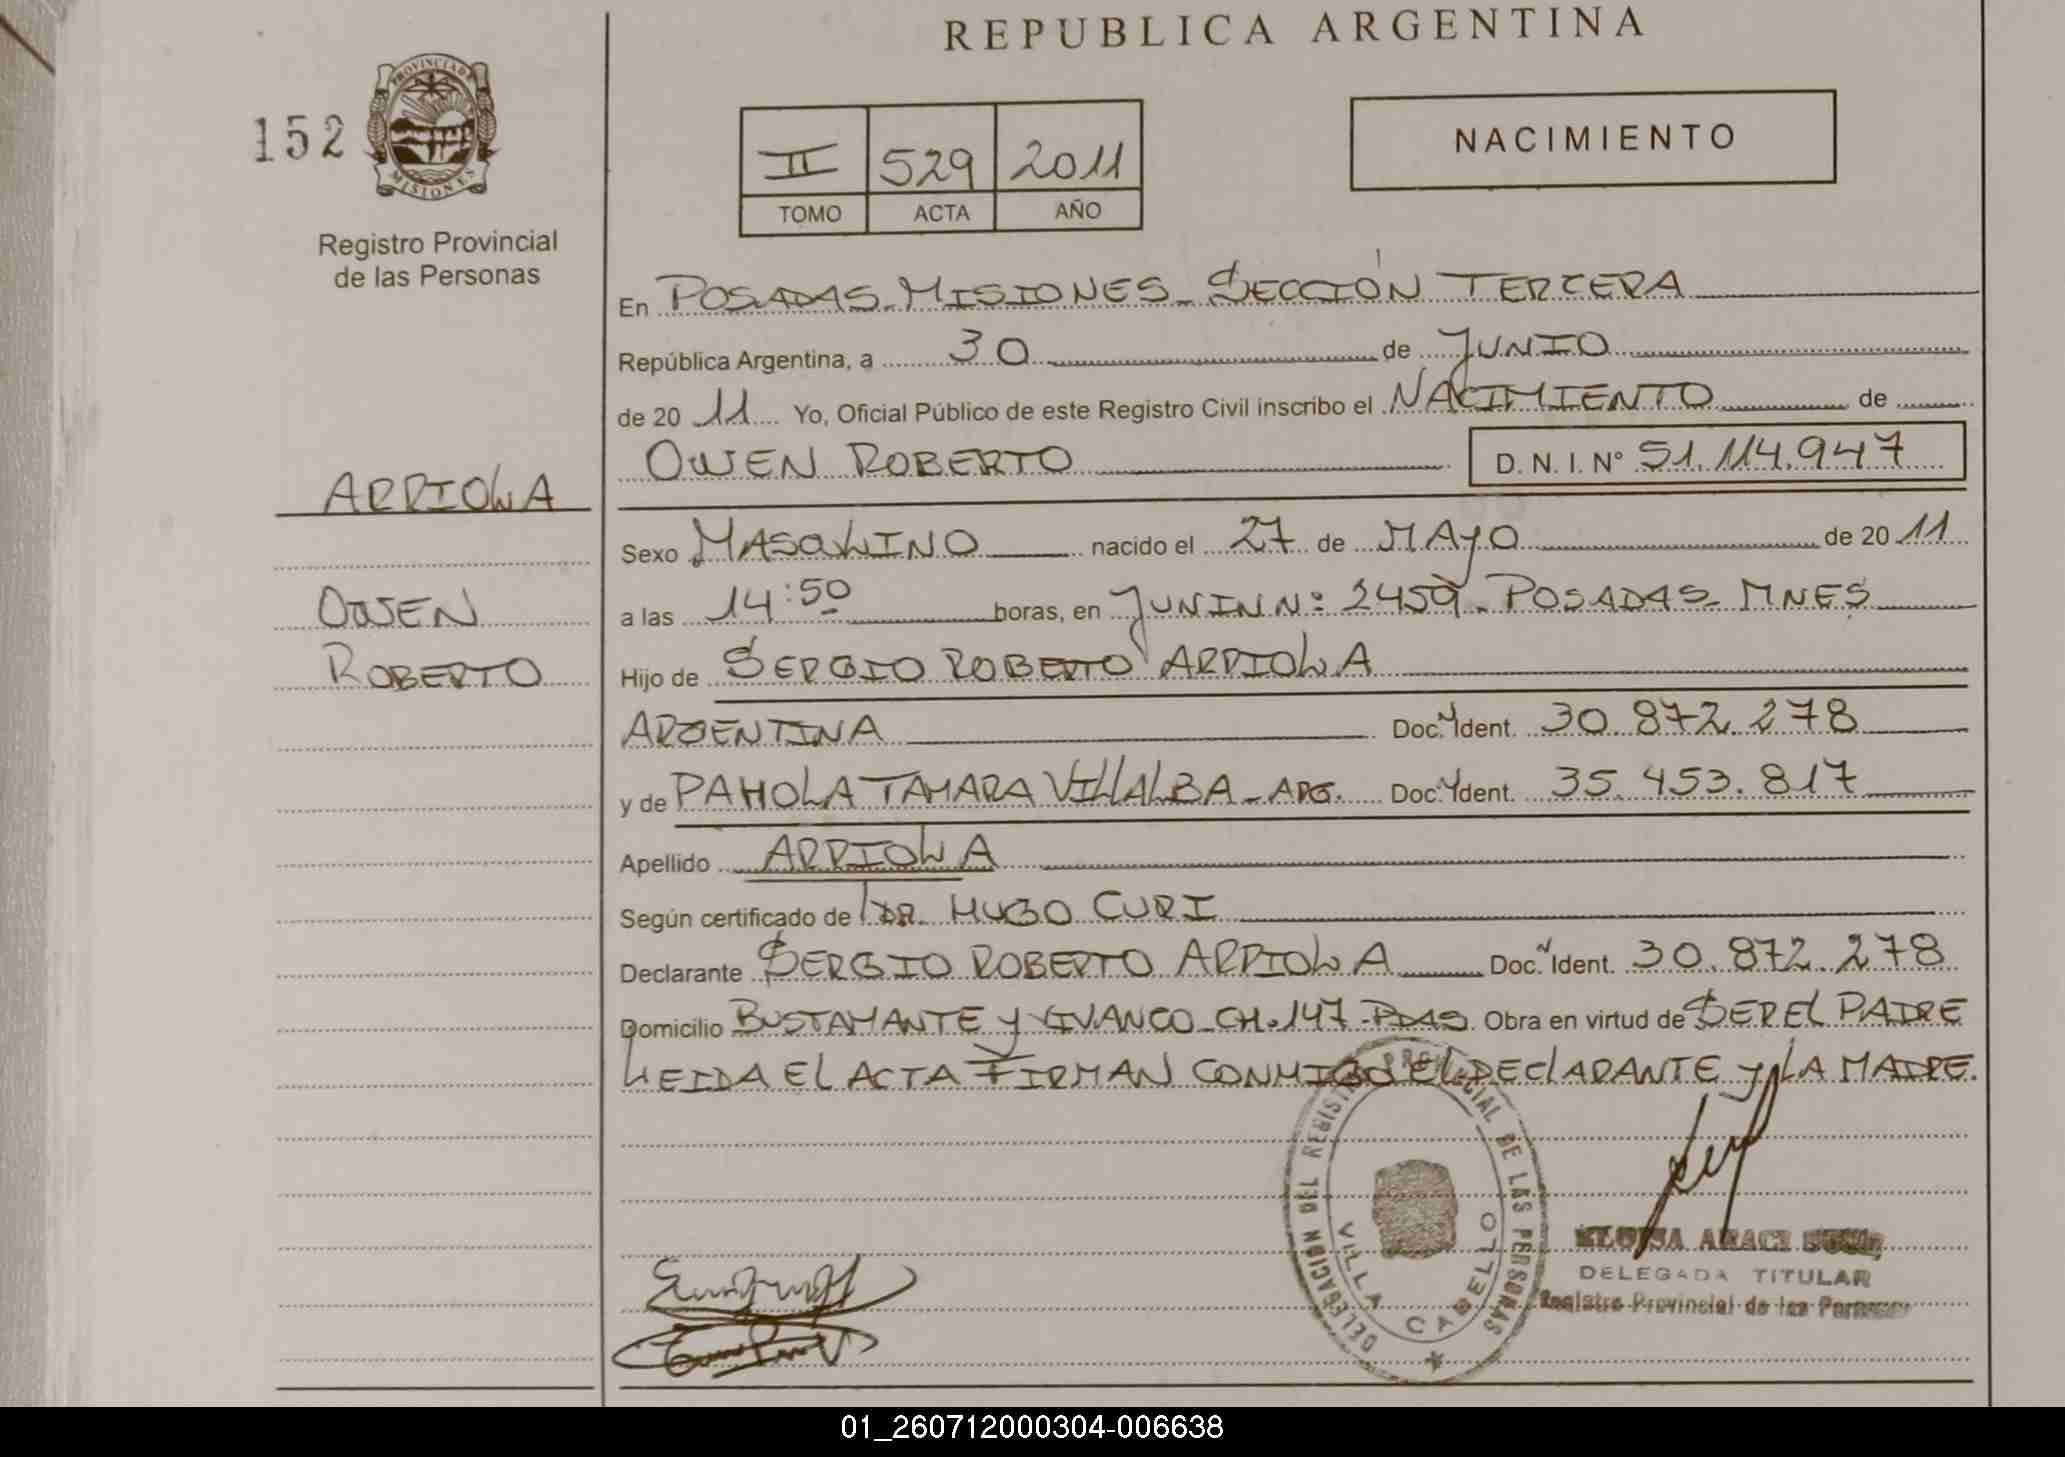 REPUBLICA ARGENTINA
152
PROVINCIA DE
MISIONES
Registro Provincial
de las Personas
II 529 2011
TOMO ACTA AÑO
NACIMIENTO
En POSADAS MISIONES SECCIÓN TERCERA
República Argentina, a 30 de JUNIO
de 20 11 Yo, Oficial Público de este Registro Civil inscribo el NACIMIENTO de
OWEN ROBERTO D. N. I. Nº 51.114.947
ARRIOLA
Sexo MASCULINO nacido el 27 de MAYO de 20 11
OWEN
a las 14:50 horas, en JUNIN Nº 2459 - POSADAS - MNES
ROBERTO
Hijo de SERGIO ROBERTO ARRIOLA
ARGENTINA Doc. Ident. 30.872.278
y de PAHOLA TAMARA VILLALBA - ARG. Doc. Ident. 35.453.817
Apellido ARRIOLA
Según certificado de DR. HUGO CURI
Declarante SERGIO ROBERTO ARRIOLA Doc. Ident. 30.872.278
Domicilio BUSTAMANTE Y VIVANCO - CH. 147 - PDAS Obra en virtud de SER EL PADRE
LEIDA EL ACTA FIRMAN CONMIGO EL DECLARANTE Y LA MADRE.
DELEGACION DEL REGISTRO PROVINCIAL DE LAS PERSONAS
VILLA CABELLO
ELOISA ARACI
DELEGADA TITULAR
Registro Provincial de las Personas
01_260712000304-006638